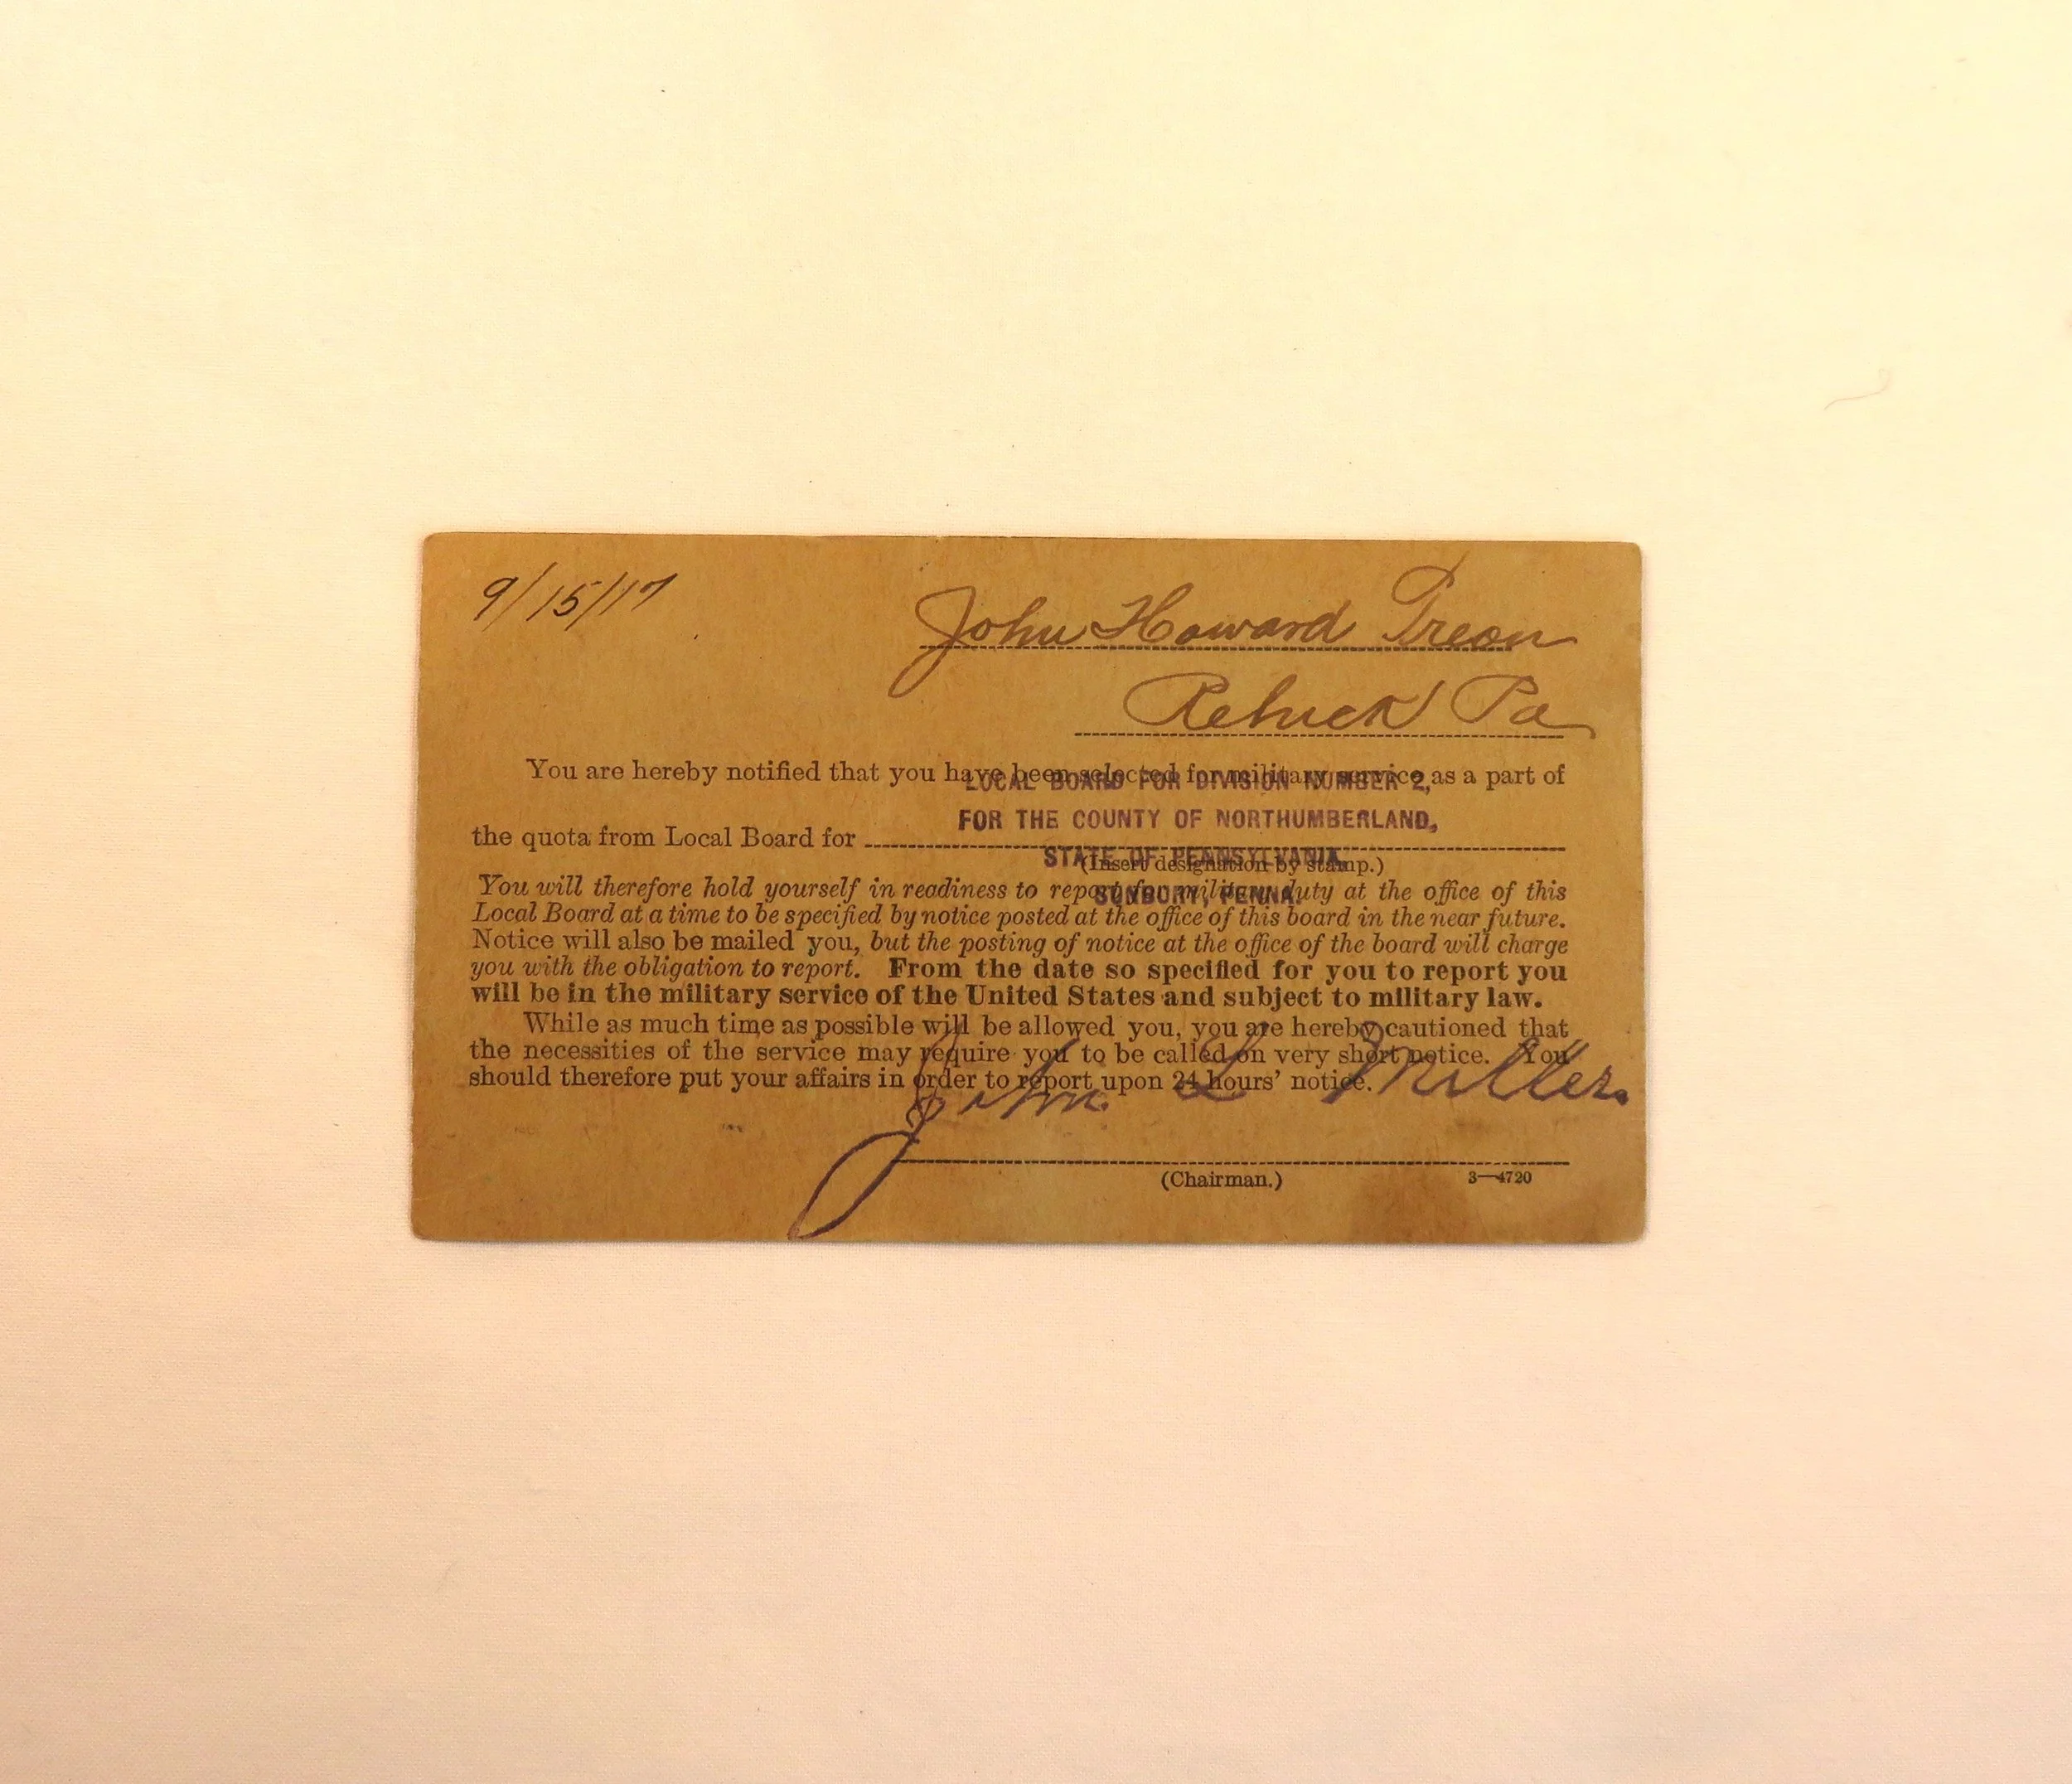 9/15/17
John Howard Treon
Rebuck Pa
You are hereby notified that you have been selected for military service as a part of
LOCAL BOARD FOR DIVISION NUMBER 2,
FOR THE COUNTY OF NORTHUMBERLAND,
the quota from Local Board for
STATE OF PENNSYLVANIA,
(Insert designation by stamp.)
You will therefore hold yourself in readiness to report for military duty at the office of this
SUNBURY, PENNA.
Local Board at a time to be specified by notice posted at the office of this board in the near future.
Notice will also be mailed you, but the posting of notice at the office of the board will charge
you with the obligation to report. From the date so specified for you to report you
will be in the military service of the United States and subject to military law.
While as much time as possible will be allowed you, you are hereby cautioned that
the necessities of the service may require you to be called on very short notice. You
should therefore put your affairs in order to report upon 24 hours' notice.
John L Miller.
(Chairman.)
3—4720